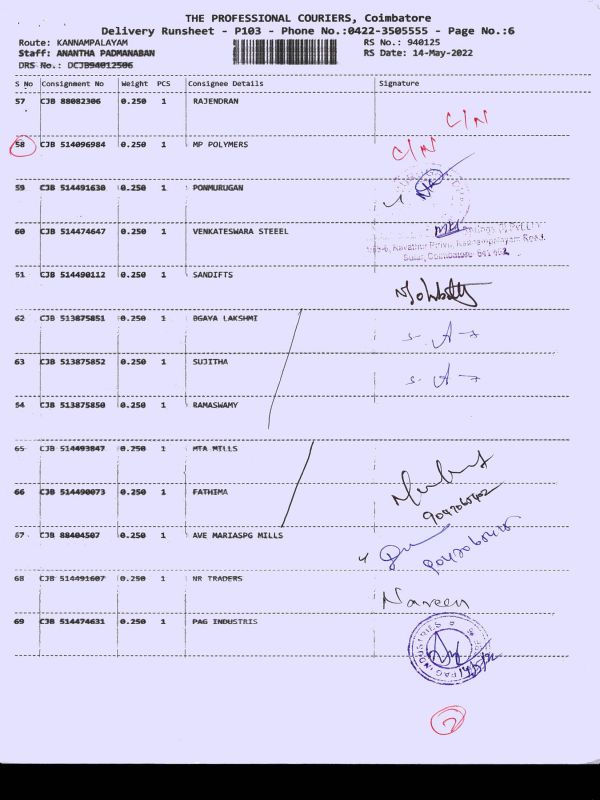 THE PROFESSIONAL COURIERS, Coimbatore
Delivery Runsheet - P103 - Phone No.:0422-3505555 - Page No.:6
Route: KANNAMPALAYAM RS No.: 940125
Staff: ANANTHA PADMANABAN RS Date: 14-May-2022
DRS No.: DCJB94012506
S No Consignment No Weight PCS Consignee Details Signature
57 CJB 88082306 0.250 1 RAJENDRAN
C/N
58 CJB 514096984 0.250 1 MP POLYMERS C/N
59 CJB 514491630 0.250 1 PONMURUGAN
60 CJB 514474647 0.250 1 VENKATESWARA STEEEL
Kannampalayam Road,
Sulur, Coimbatore 641 402
61 CJB 514490112 0.250 1 SANDIFTS
62 CJB 513875851 0.250 1 BGAYA LAKSHMI
63 CJB 513875852 0.250 1 SUJITHA
64 CJB 513875850 0.250 1 RAMASWAMY
65 CJB 514493847 0.250 1 MTA MILLS
66 CJB 514490073 0.250 1 FATHIMA
67 CJB 88404507 0.250 1 AVE MARIASPG MILLS
68 CJB 514491607 0.250 1 NR TRADERS
Naveen
69 CJB 514474631 0.250 1 PAG INDUSTRIS
PAG INDUSTRIES
2